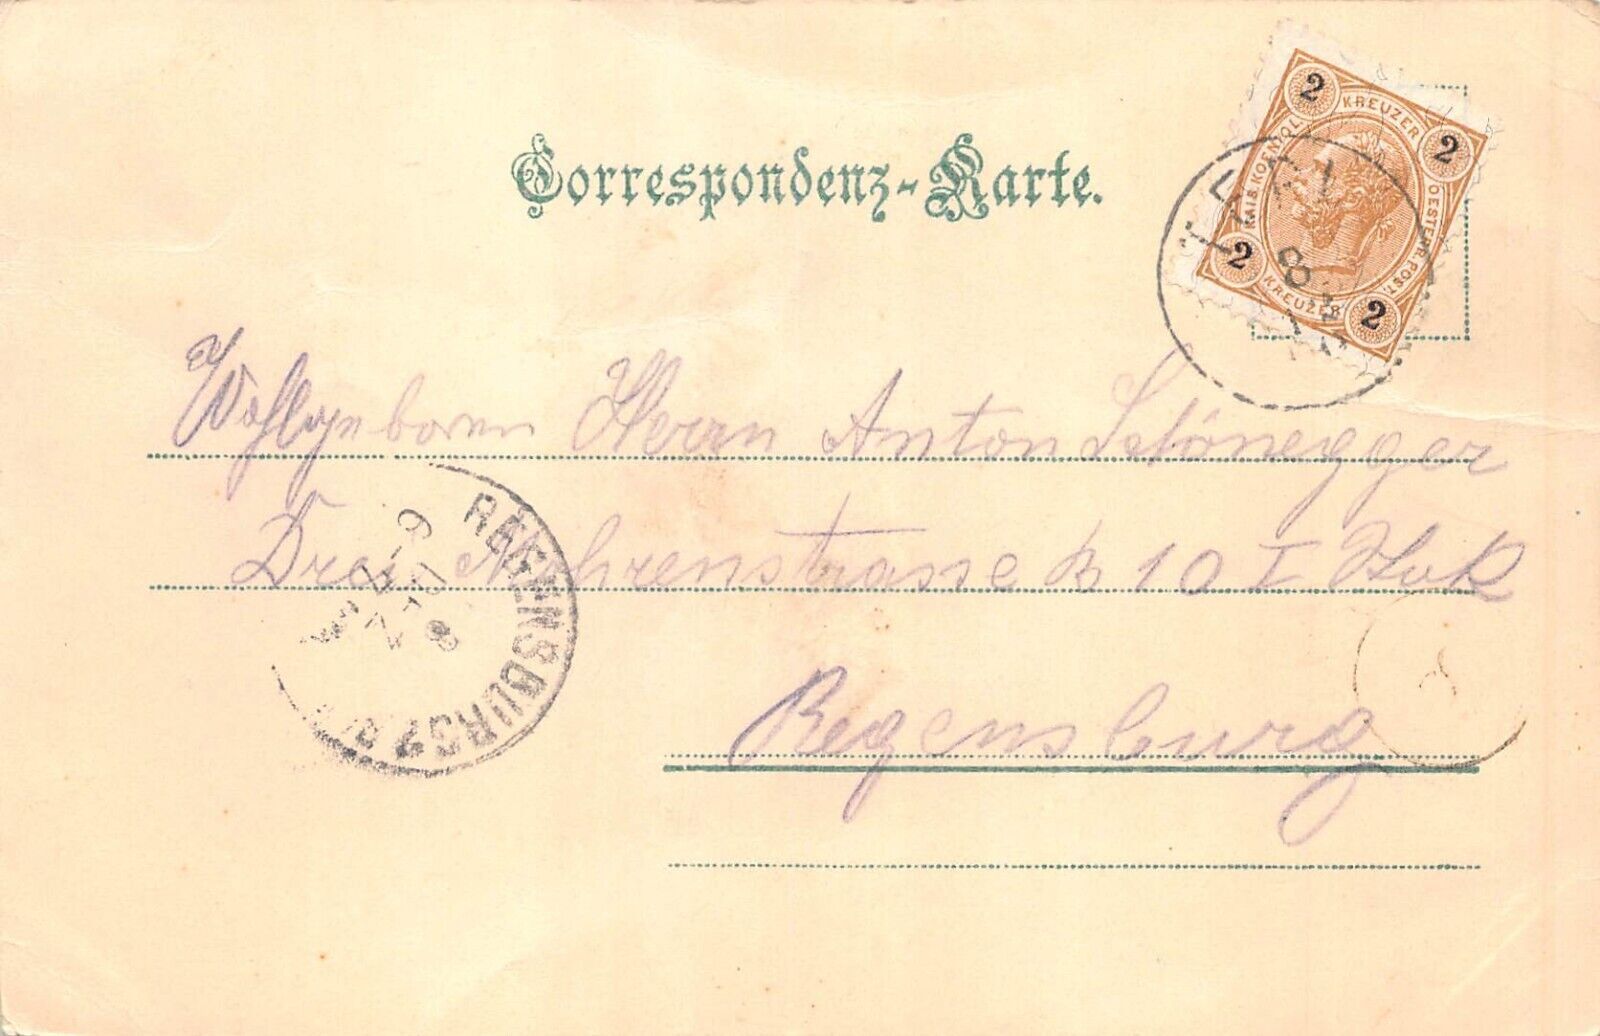 Correspondenz-Karte.
2 KREUZER 2
KAIS. KOENIGL. OESTERR. POST.
2 KREUZER 2
8
Wohlgeboren Herrn Anton Schönegger
Drei Mohrenstrasse B 10 I Stock
REGENSBURG 2
Regensburg